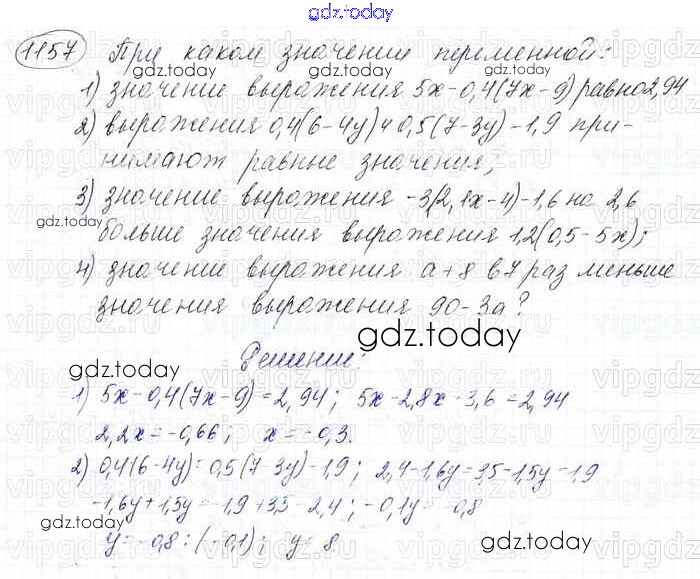 gdz.today
1157 При каком значении переменной:
gdz.today gdz.today
1) значение выражения 5x-0,4(7x-9) равно 2,94
2) выражения 0,4(6-4y) и 0,5(7-3y)-1,9 при-
нимают равные значения;
3) значение выражения -3(2,1x-4)-1,6 на 2,6
gdz.today gdz.today
больше значения выражения 1,2(0,5-5x);
4) значение выражения a+8 в 7 раз меньше
значения выражения 90-3a?
gdz.today
Решение:
gdz.today
1) 5x-0,4(7x-9)=2,94; 5x-2,8x+3,6=2,94
2,2x=-0,66; x=-0,3.
2) 0,4(6-4y)=0,5(7-3y)-1,9; 2,4-1,6y=3,5-1,5y-1,9
-1,6y+1,5y=-1,9+3,5-2,4; -0,1y=-0,8
gdz.today gdz.today
y=-0,8:(-0,1); y=8
gdz.today